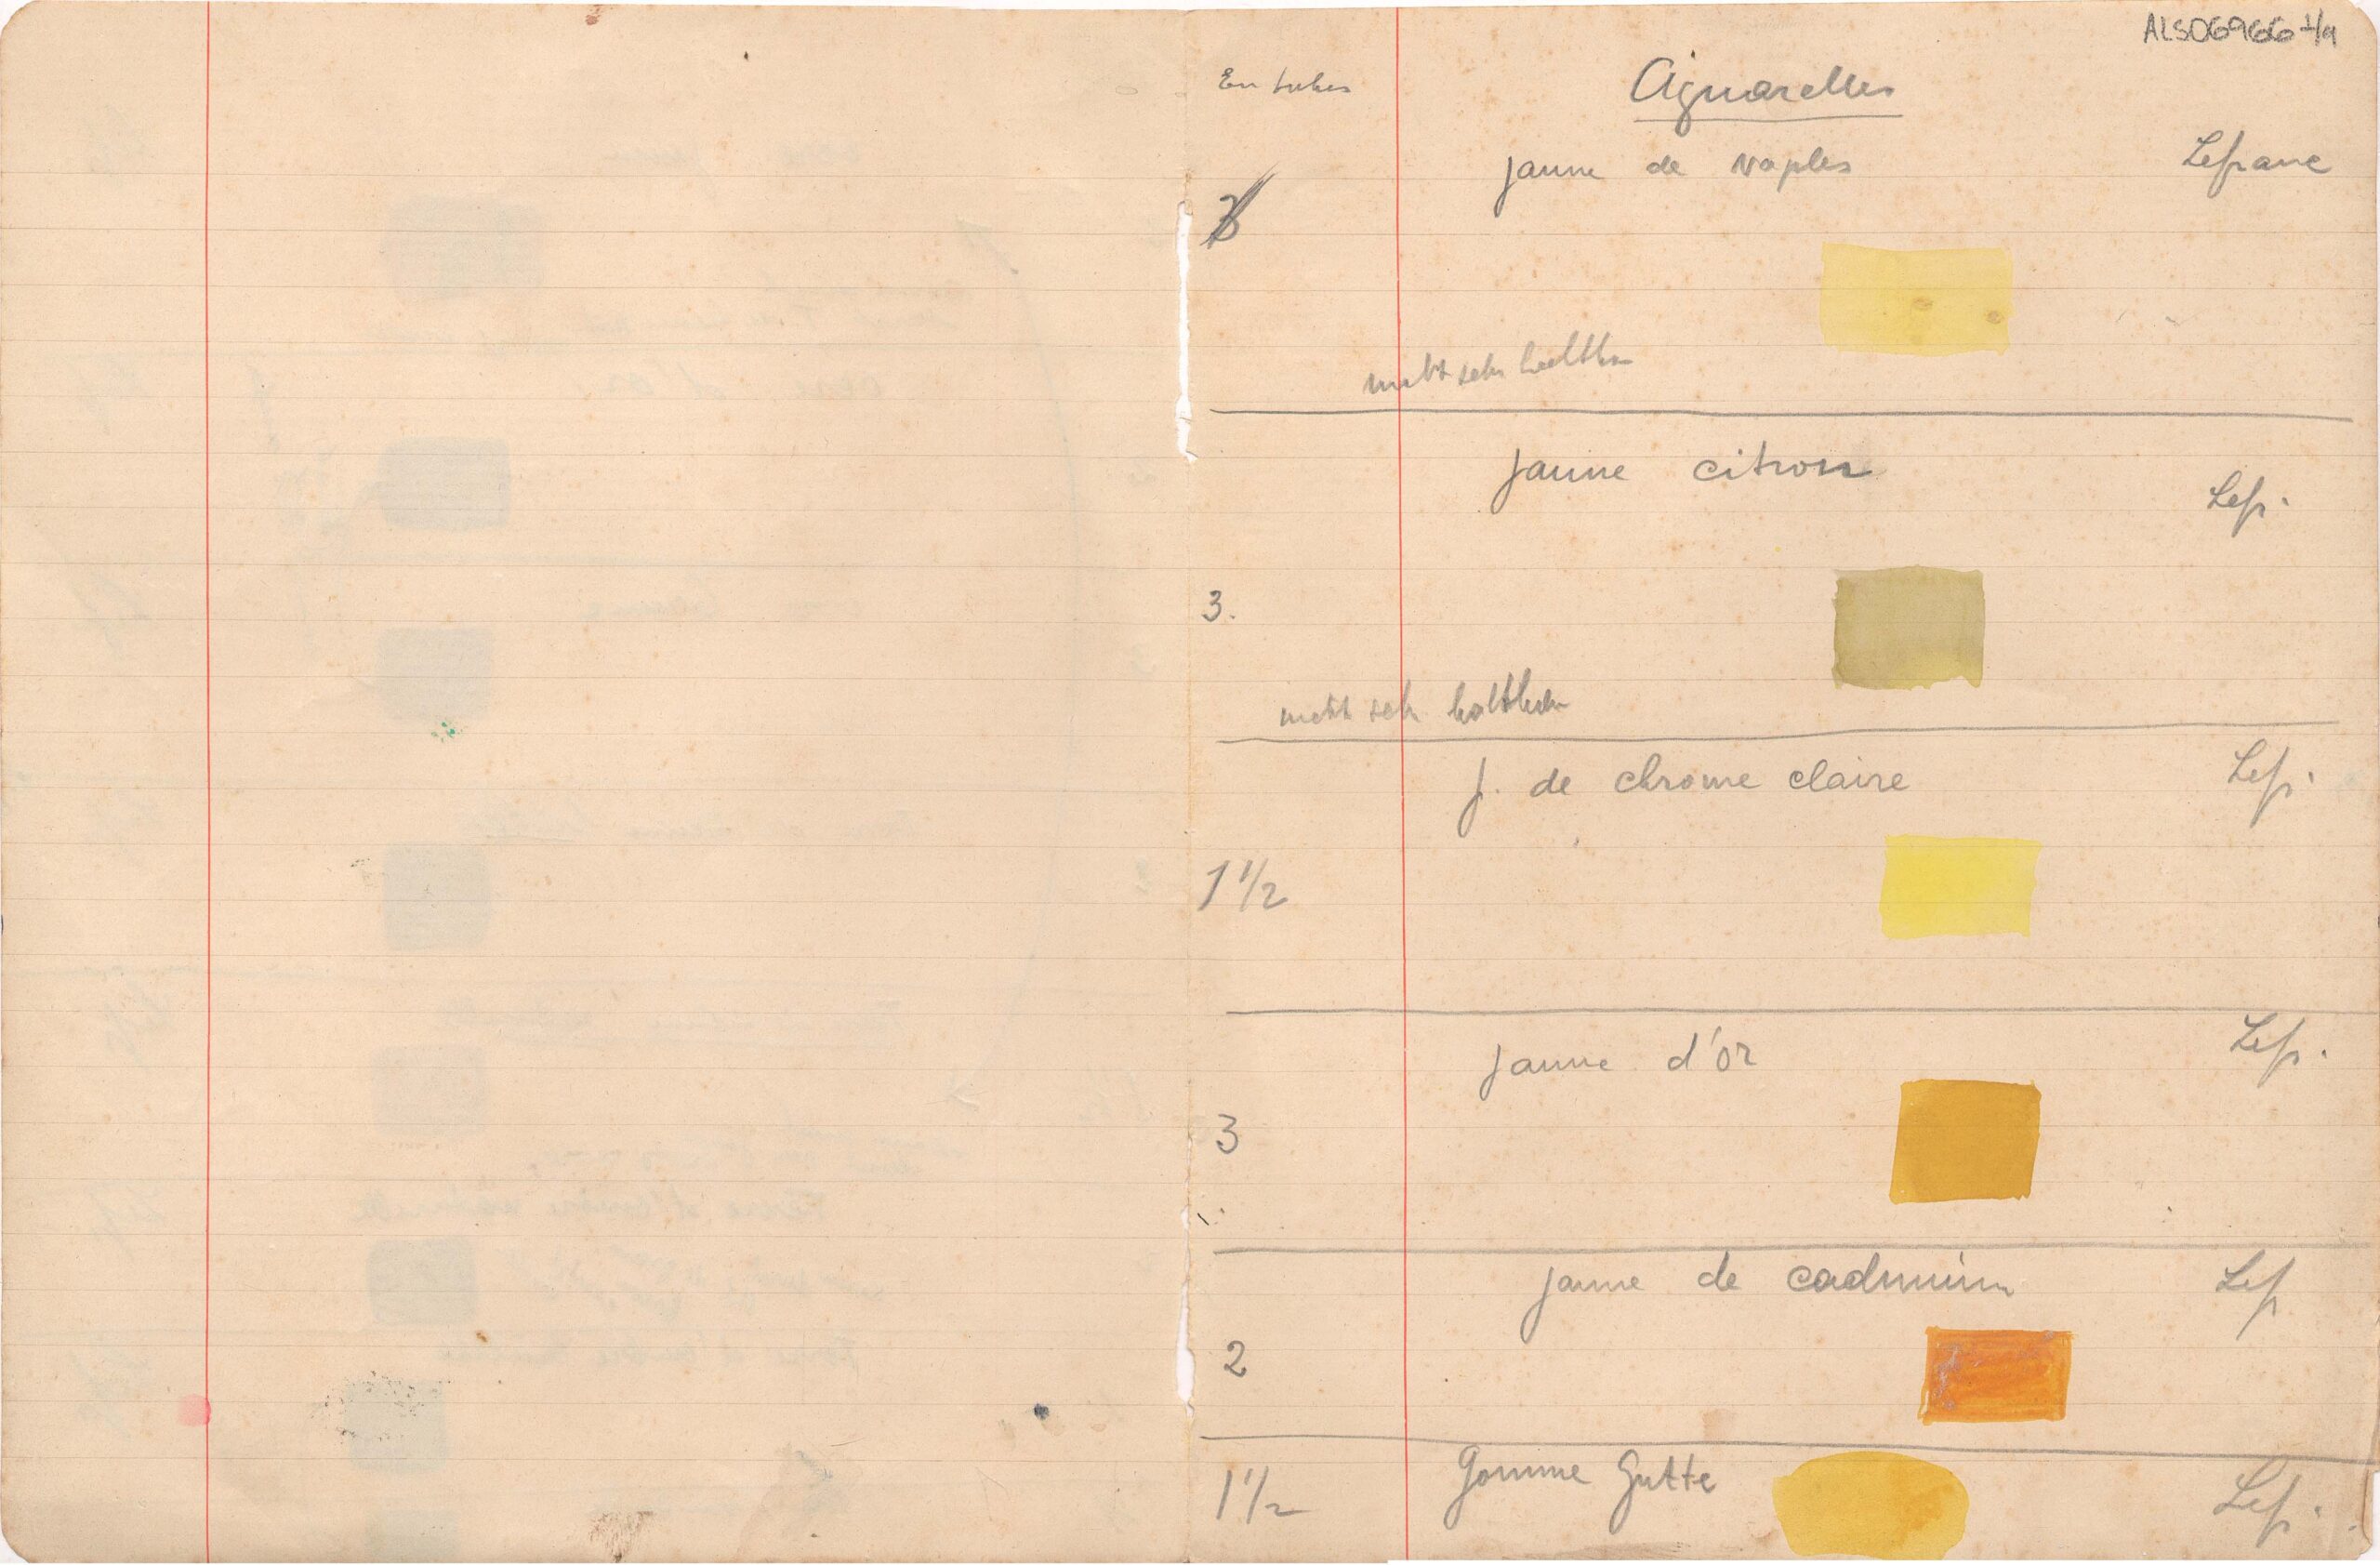 ALS06966 1/9
En tubes Aquarelles
jaune de Naples Lefranc
nicht sehr haltbar
jaune citron
Lefr.
3.
nicht sehr haltbar
j. de chrome claire Lefr.
1 1/2
jaune d'or Lefr.
3
jaune de cadmium Lef
2
1 1/2 Gomme Gutte Lef.